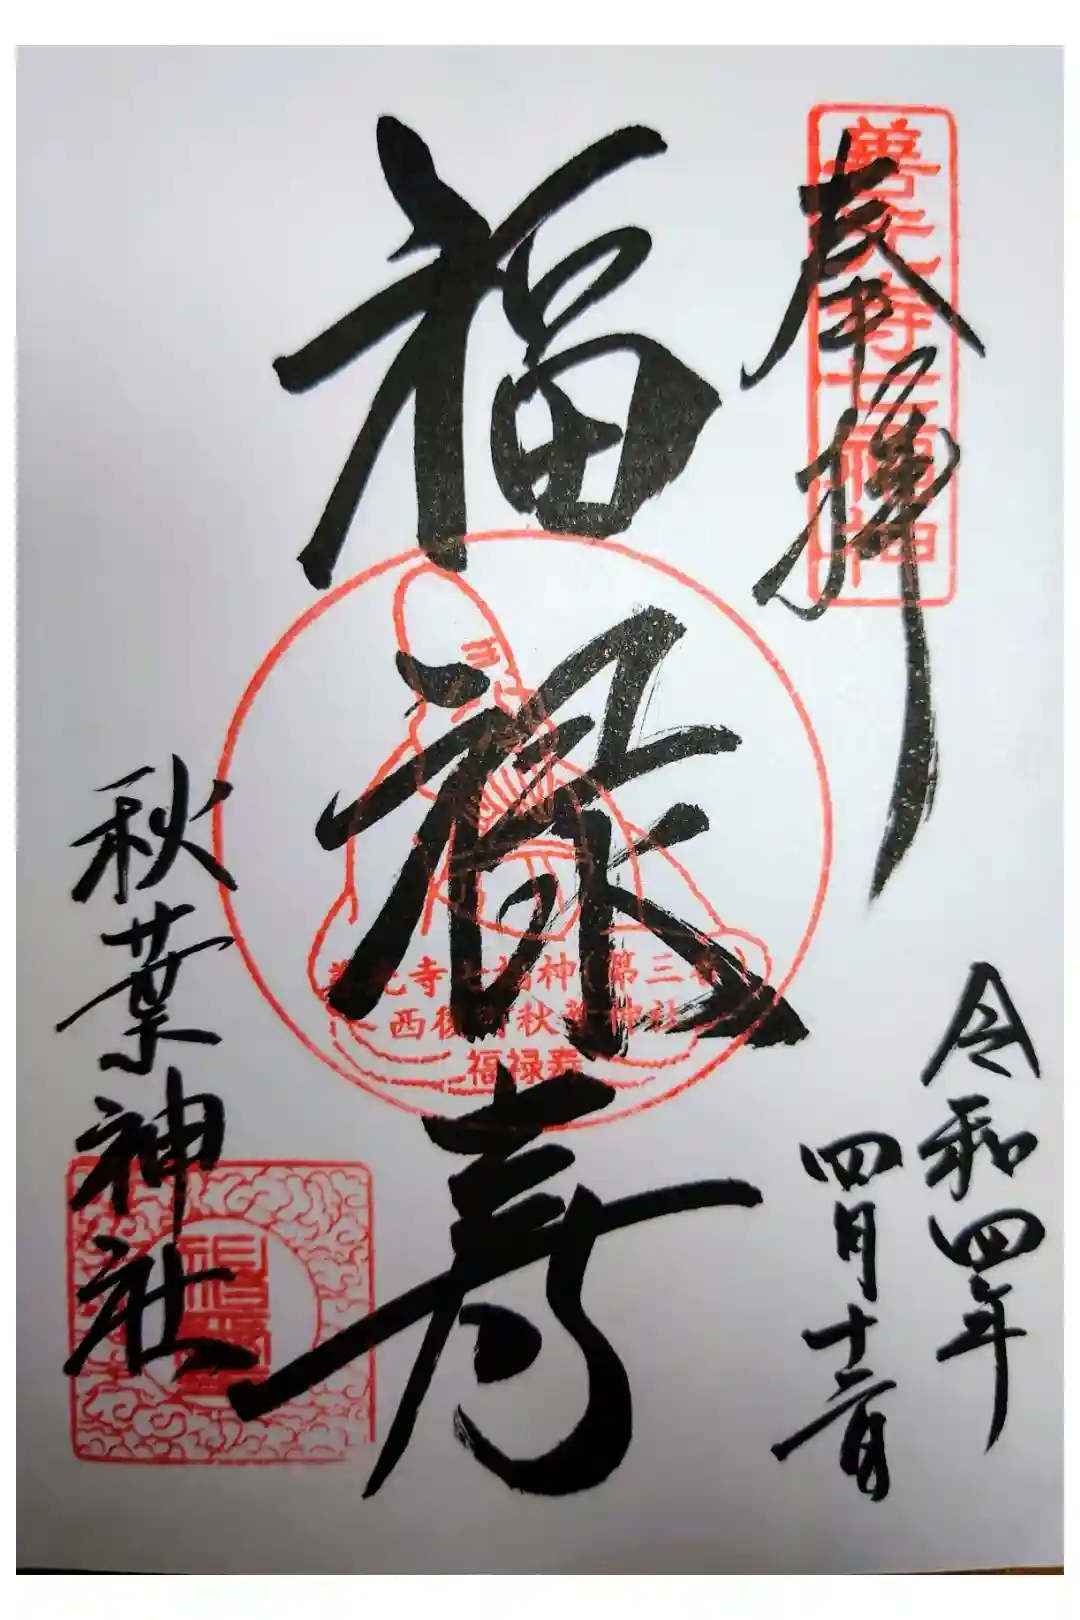 奉拝
善光寺七福神
令和四年
四月十二日
福禄寿
善光寺七福神(第三番)
西後町秋葉神社
福禄寿
秋葉神社